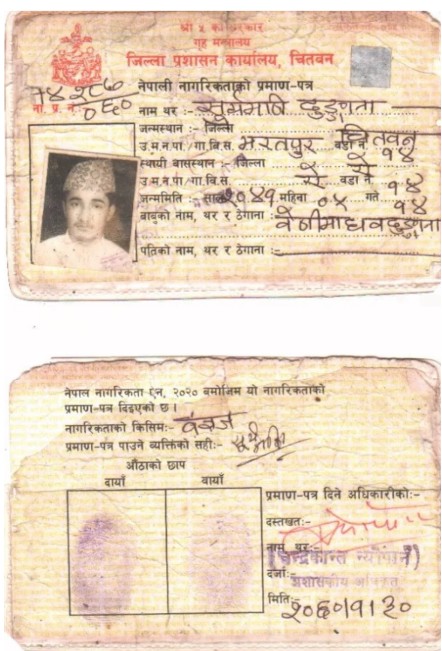 श्री ५ को सरकार
गृह मन्त्रालय
जिल्ला प्रशासन कार्यालय, चितवन
नेपाली नागरिकताको प्रमाण-पत्र
ना. प्र. नं.
नाम थर :-
जन्मस्थान :- जिल्ला चितवन
उ.म.न.पा./गा.वि.स. भरतपुर वडा नं १४
स्थायी बासस्थान :- जिल्ला
उ.म.न.पा./गा.वि.स. वडा नं १४
जन्ममिति :- साल २०४१ महिना ०४ गते १४
बाबुको नाम, थर र ठेगाना :-
पतिको नाम, थर र ठेगाना :-
नेपाल नागरिकता ऐन, २०२० बमोजिम यो नागरिकताको
प्रमाण-पत्र दिइएको छ।
नागरिकताको किसिम:- वंशज
प्रमाण-पत्र पाउने व्यक्तिको सही:-
औंठाको छाप
दायाँ बायाँ
प्रमाण-पत्र दिने अधिकारीको:-
दस्तखत:-
नाम, थर:-
दर्जा:-
मिति:- २०६०।१।३०